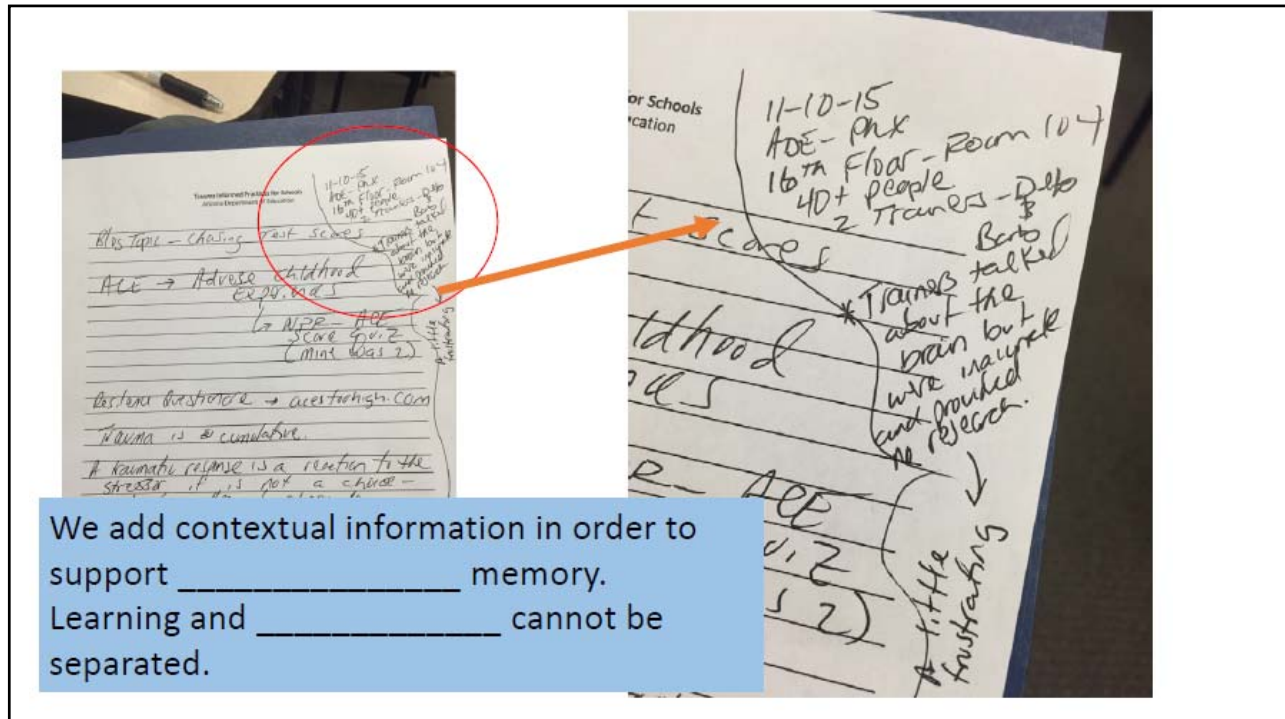 Trauma Informed Practices for Schools
Arizona Department of Education
11-10-15
ADE - PHX
16th Floor - Room 104
40+ people
2 Trainers -
Blog Topic - Chasing Test Scores
* Trainers talked
about the
brain but
were
and provided
no research.
A little
frustrating
ACE → Adverse childhood
↳ NPR - ACE
Score quiz
(mine was 2)
→ acestoohigh.com
Trauma is cumulative.
A traumatic response is a reaction to the
stressor it is not a
or Schools
cation
11-10-15
ADE - PHX
16th Floor - Room 104
40+ people
2 Trainers -
t scores
* Trainers talked
about the
brain but
were
and provided
no research.
ldhood
R - ACE
s 2)
A little
frustrating
We add contextual information in order to
support _______________ memory.
Learning and _____________ cannot be
separated.